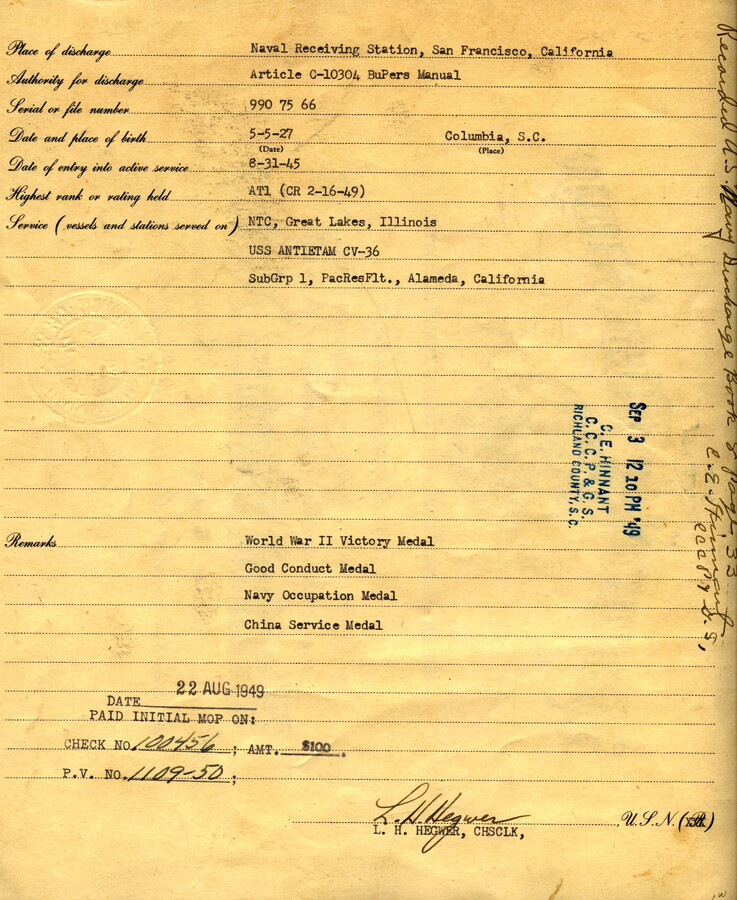 Place of discharge Naval Receiving Station, San Francisco, California
Authority for discharge Article C-10304 BuPers Manual
Serial or file number 990 75 66
Date and place of birth 5-5-27 Columbia, S.C.
(Date) (Place)
Date of entry into active service 8-31-45
Highest rank or rating held AT1 (CR 2-16-49)
Service (vessels and stations served on) NTC, Great Lakes, Illinois
USS ANTIETAM CV-36
SubGrp 1, PacResFlt., Alameda, California
Remarks World War II Victory Medal
Good Conduct Medal
Navy Occupation Medal
China Service Medal
22 AUG 1949
DATE
PAID INITIAL MOP ON:
CHECK NO. 100456 ; AMT. $100.
P.V. NO. 1109-50 ;
L. H. Hegwer
L. H. HEGWER, CHSCLK, , U.S.N. (R)
SEP 3 12 10 PM '49
C. E. HINNANT
C. C. C. P. & G. S.
RICHLAND COUNTY, S.C.
Recorded U.S Navy Discharge Book 2 page 33
C. E. Hinnant